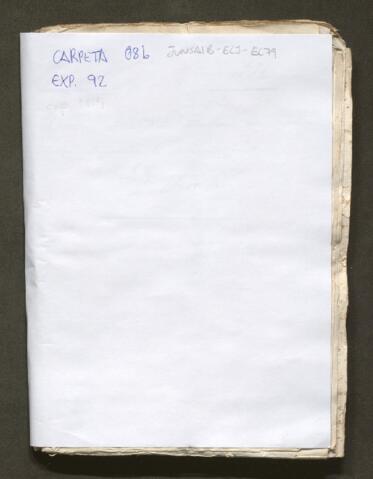 CARPETA 086 JUNSAIB-ECJ-EC79
EXP. 92